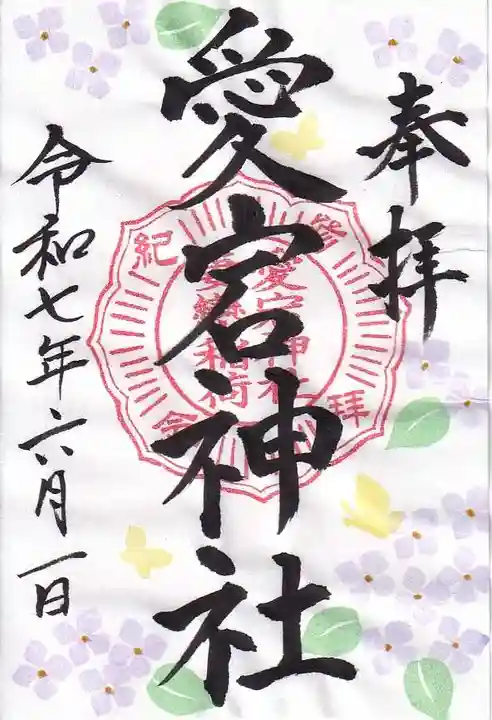 奉拝
愛宕神社
愛宕神社
稲荷
登
拝
紀
念
令和七年六月一日